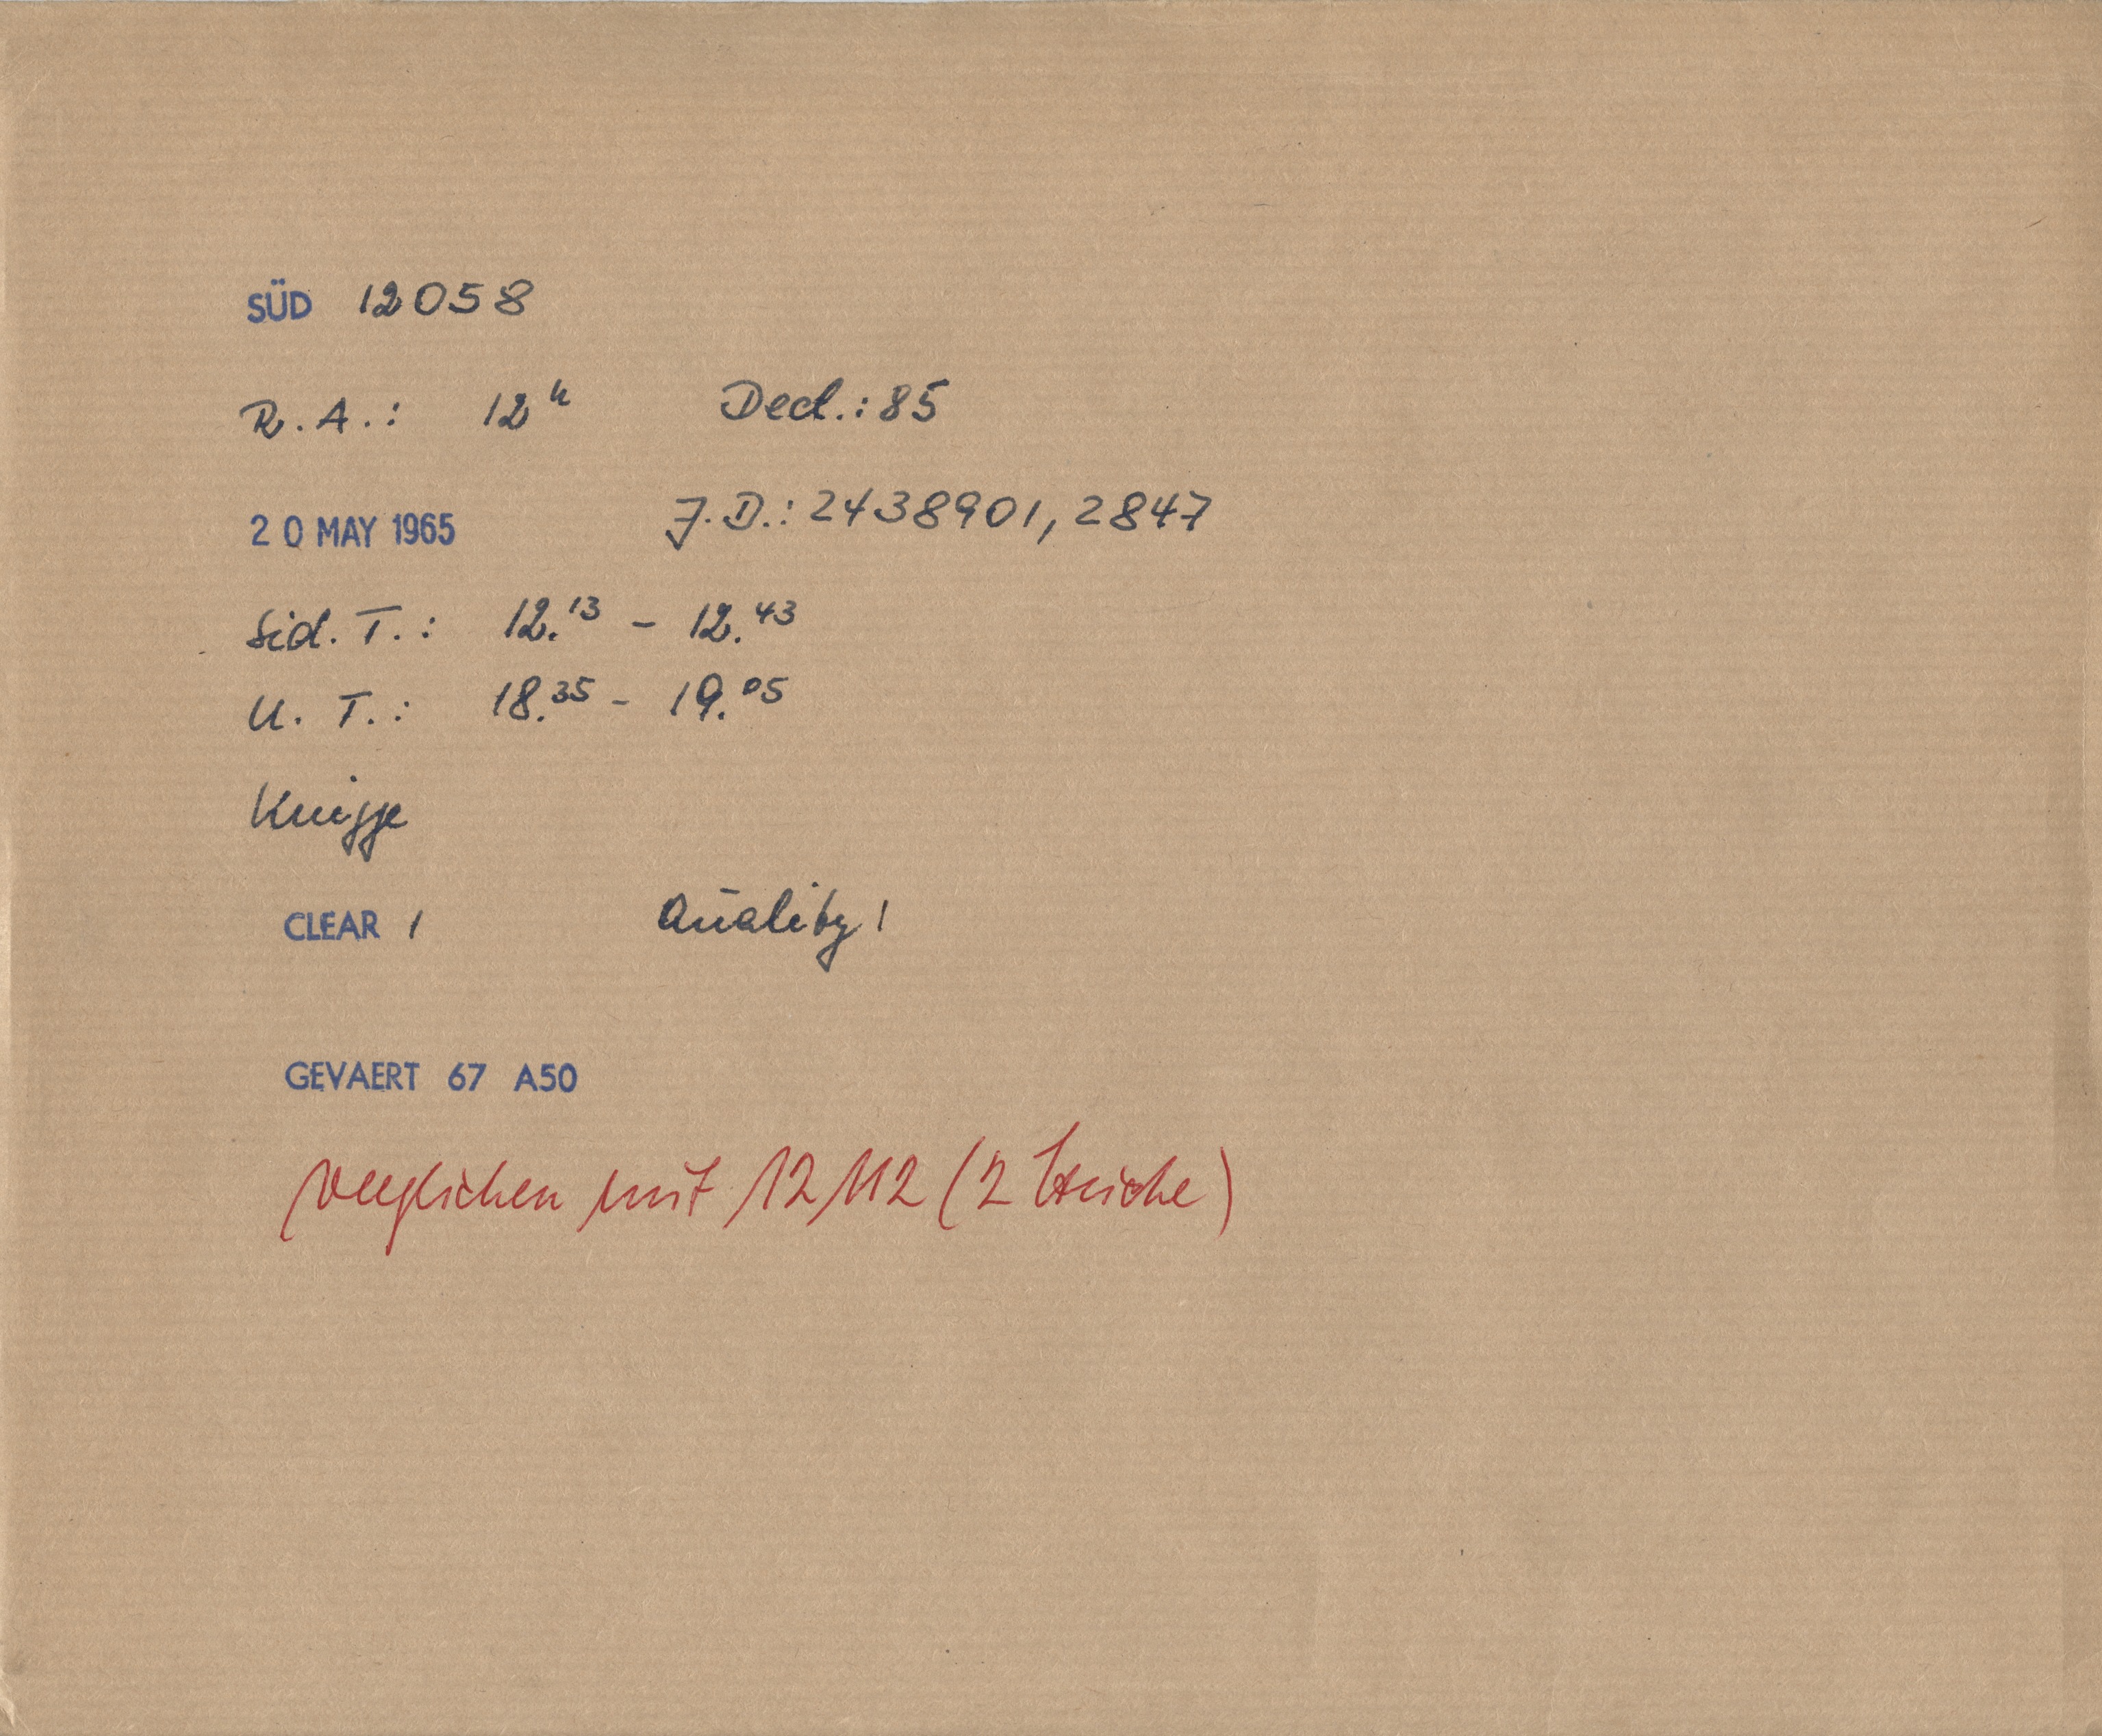 SÜD 12058
R.A.: 12ʰ Decl.: 85
20 MAY 1965 J.D.: 2438901,2847
Sid. T.: 12.¹³ - 12.⁴³
U. T.: 18.³⁵ - 19.⁰⁵
Knigge
CLEAR 1 Quality 1
GEVAERT 67 A50
verglichen mit 12112 (2 Striche)